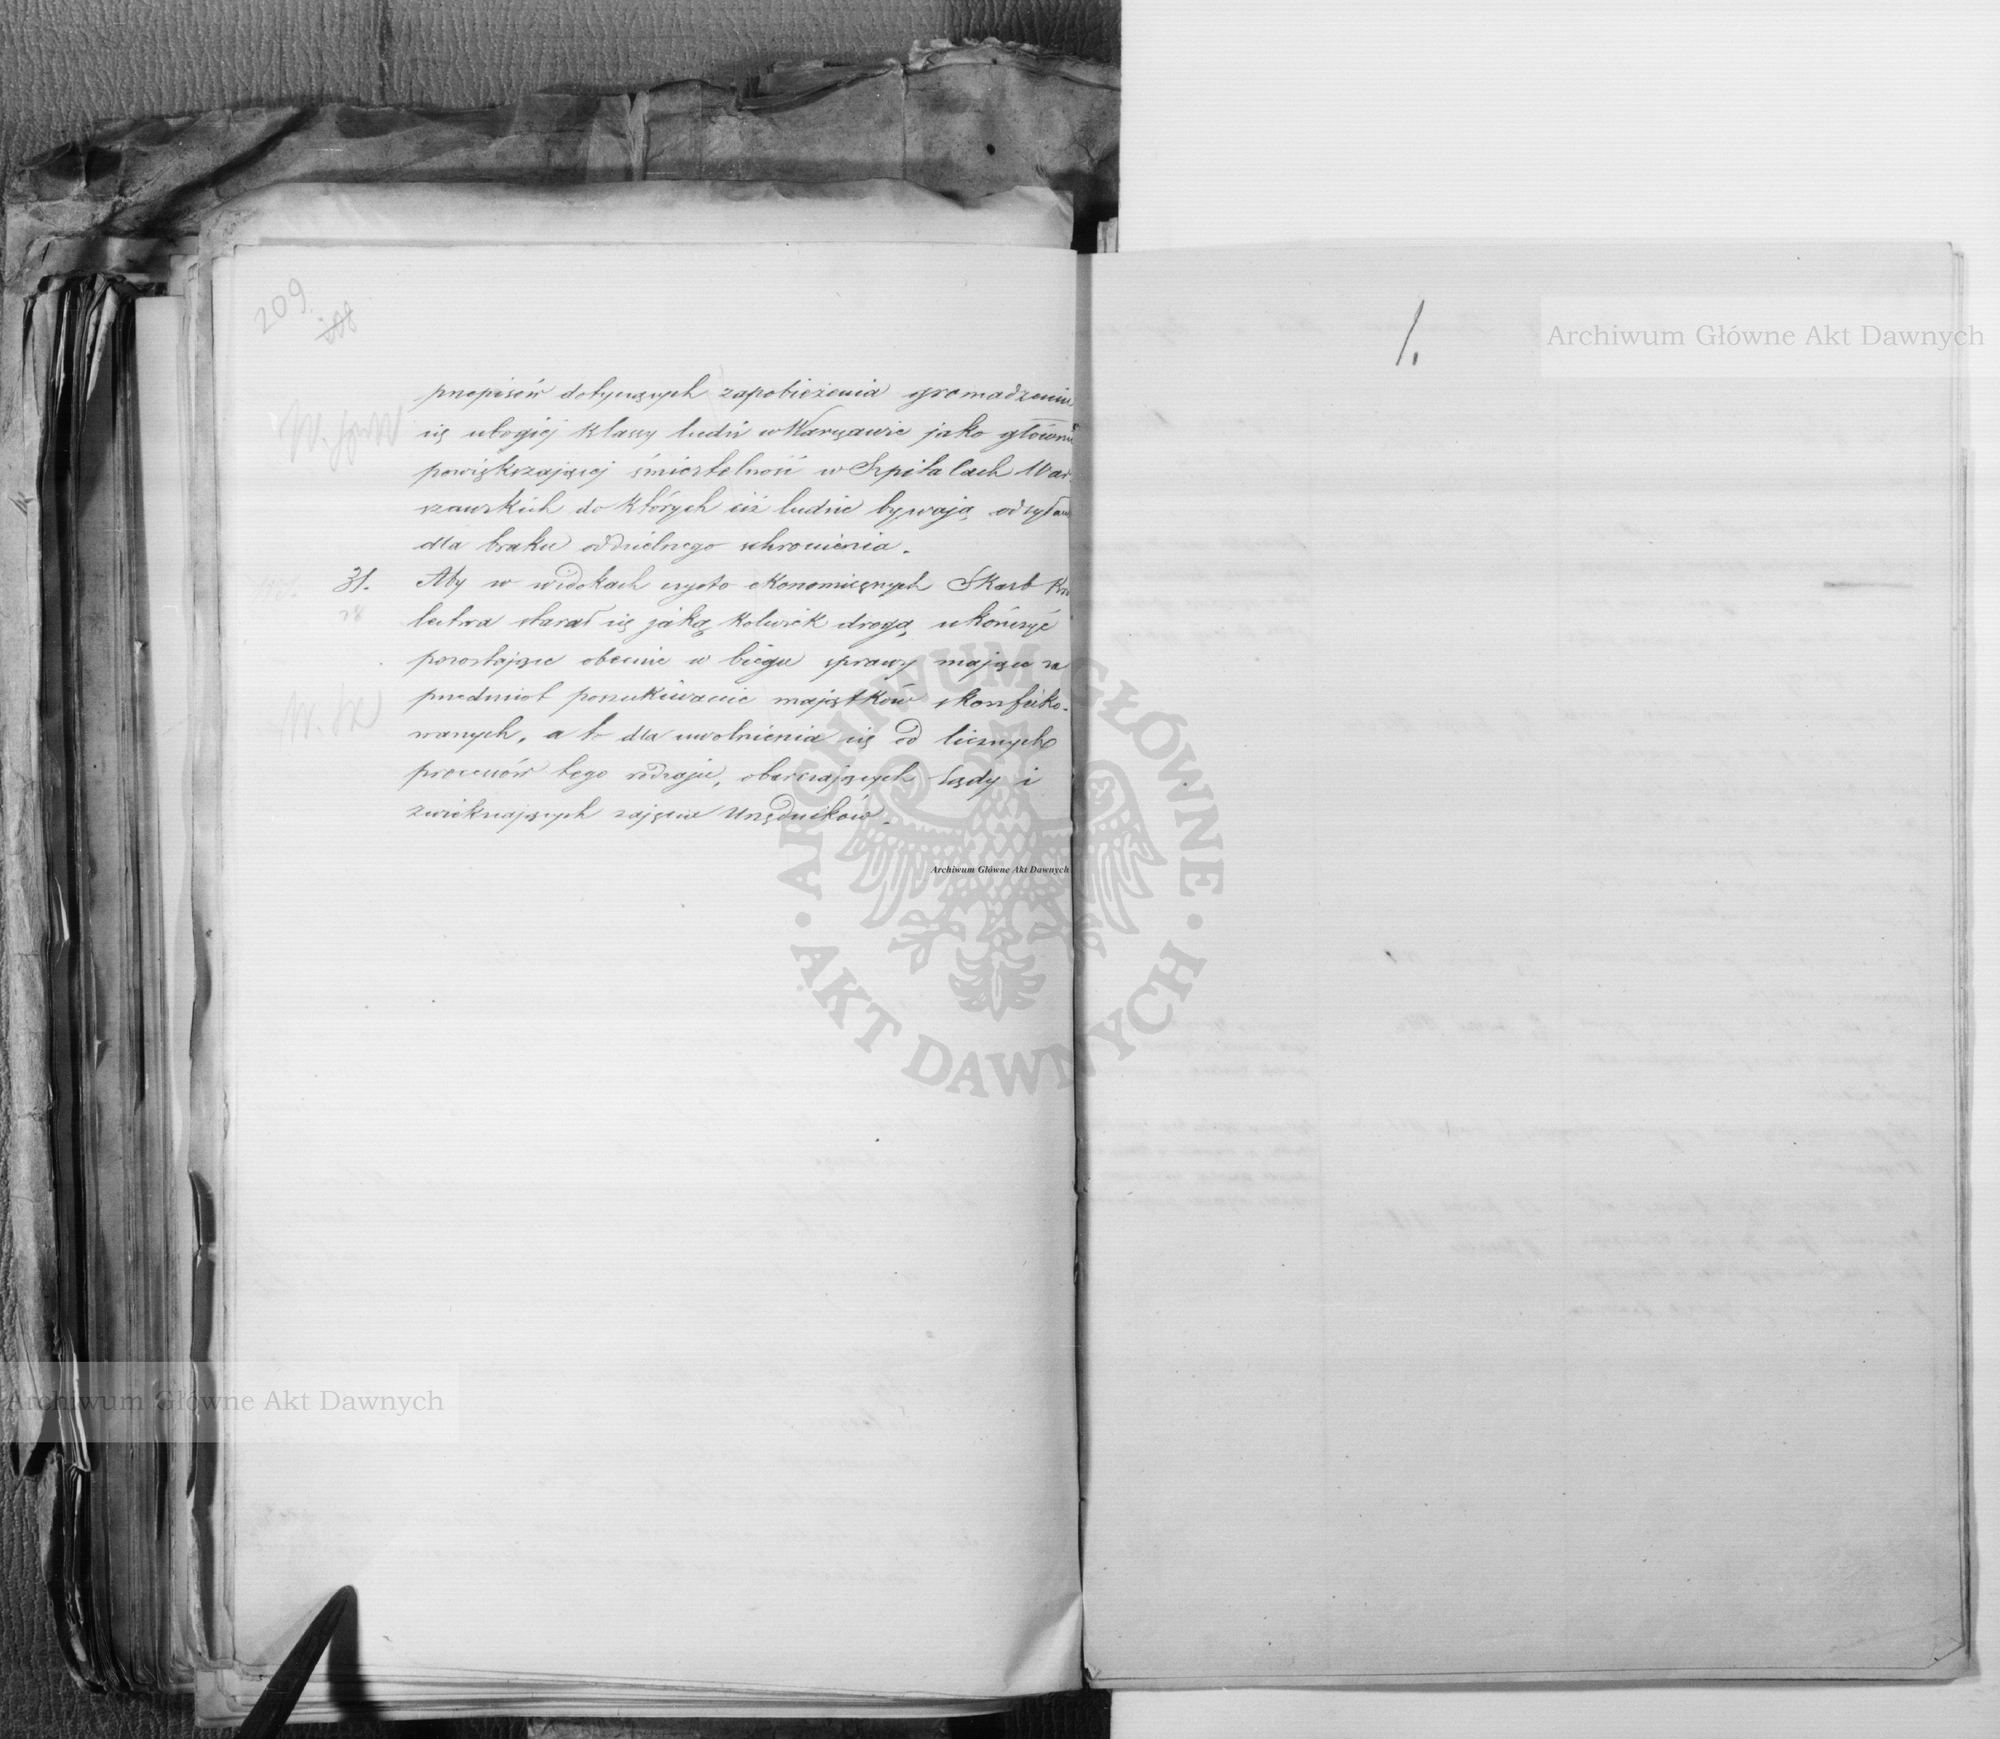 209.
przepisów dotyczących zapobieżenia gromadzeniu
się ubogiej klassy ludzi w Warszawie jako głównie
powiększającej śmiertelność w Szpitalach War-
szawskich do których ciż ludzie bywają odsyłani
dla braku oddzielnego schronienia.
31. Aby w widokach czysto ekonomicznych Skarb Kró
28
lestwa starał się jaką kolwiek drogą ukończyć
pozostające obecnie w biegu sprawy mające za
przedmiot poszukiwanie majątków skonfisko-
wanych, a to dla uwolnienia się od licznych
processów tego rodzaju, obarczających Sądy i
zwiększających zajęcie Urzędników.
1.
Archiwum Główne Akt Dawnych
ARCHIWUM GŁÓWNE
AKT DAWNYCH
Archiwum Główne Akt Dawnych
Archiwum Główne Akt Dawnych